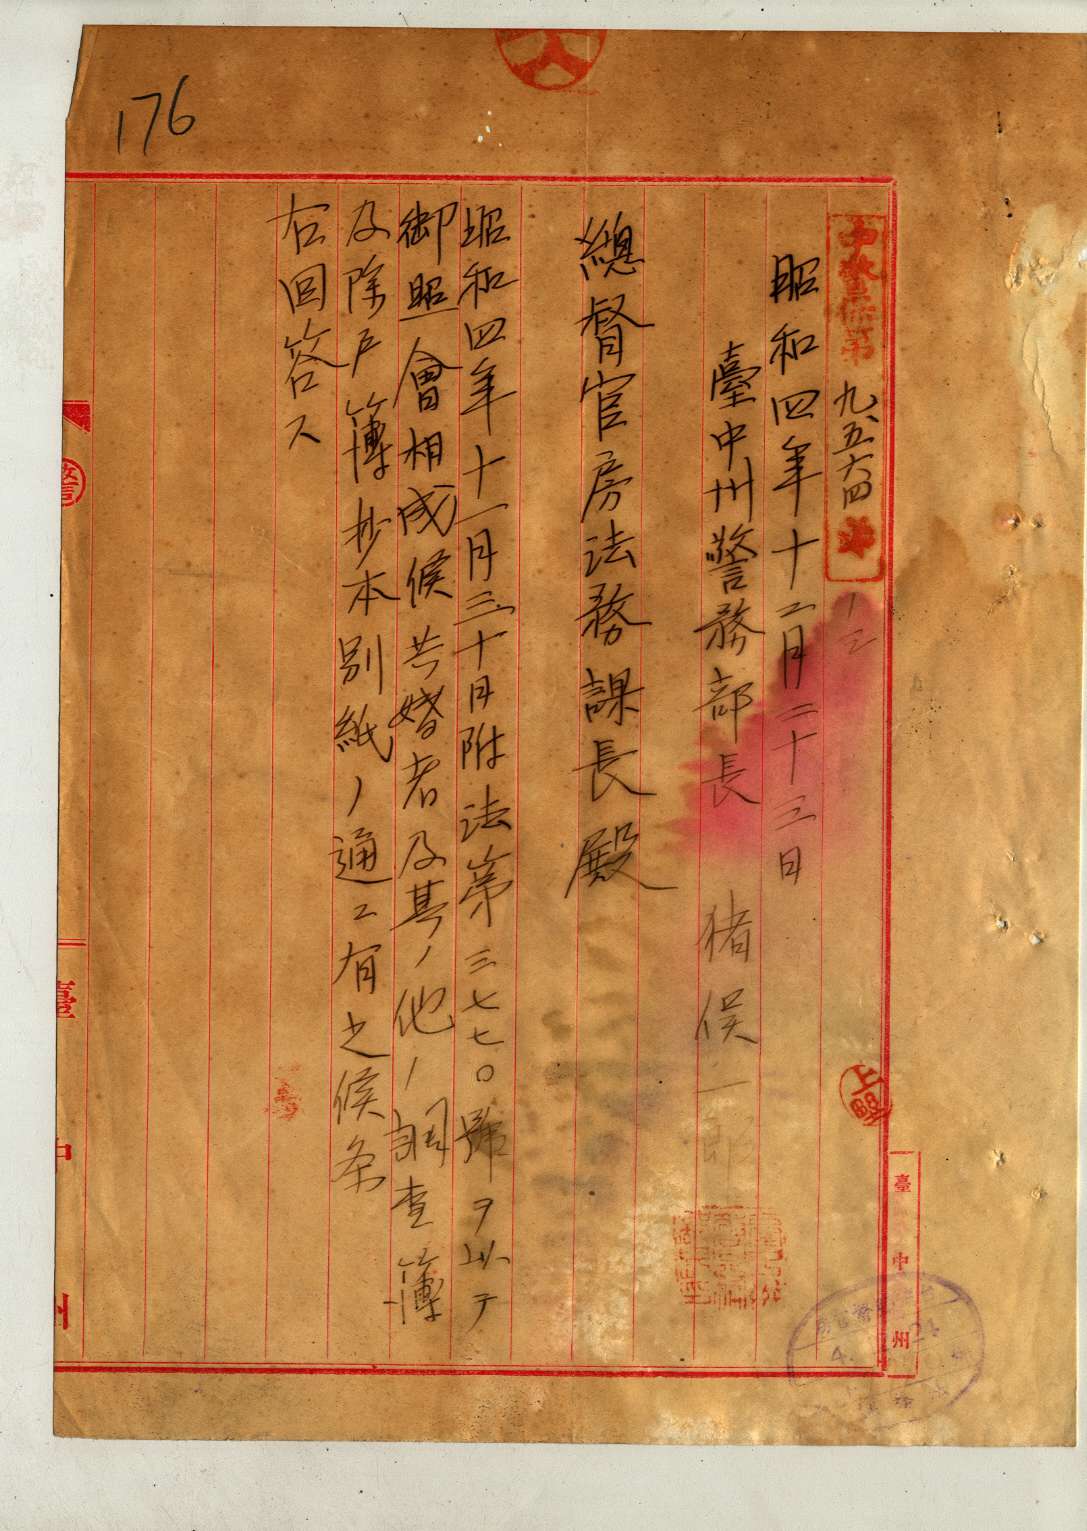 176
中警保第九、五六四號
一三
昭和四年十二月二十三日
臺中州警務部長 猪俣二郎
總督官房法務課長殿
昭和四年十一月三十日附法第三七七〇號ヲ以テ
御照會相成候共婚者及其ノ他ノ調査簿
及除戸簿抄本別紙ノ通ニ有之候条
右回答ス
上野
臺中州
4. 24
警
臺中州